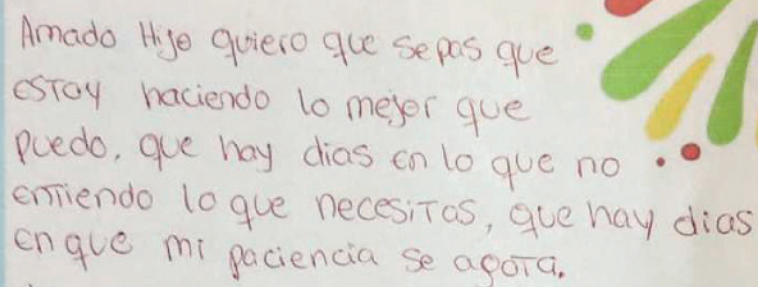 Amado Hijo quiero que sepas que
estoy haciendo lo mejor que
puedo, que hay dias en lo que no
entiendo lo que necesitas, que hay dias
en que mi paciencia se agota.